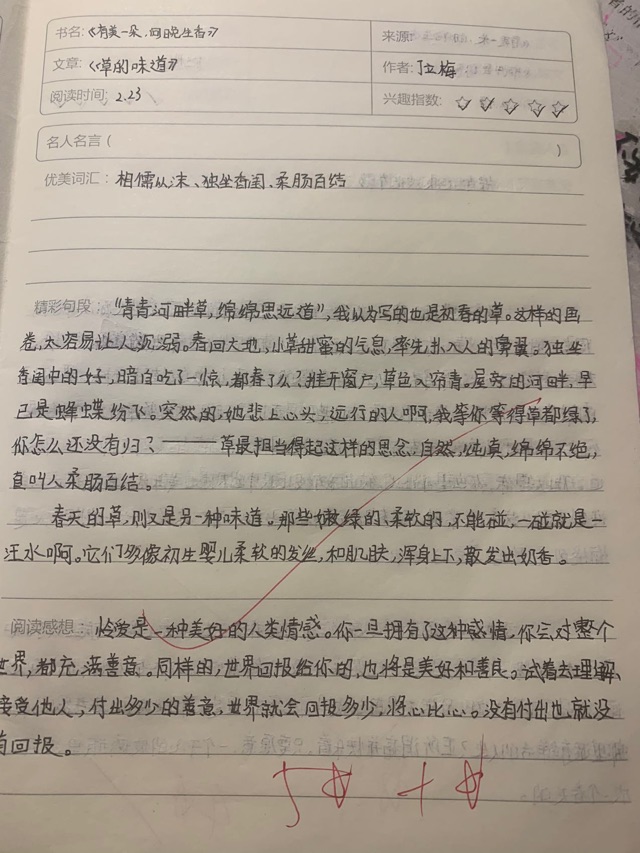 书名:《有美一朵,向晚生香》
来源:
文章:《草的味道》
作者:丁立梅
阅读时间: 2.23
兴趣指数: ☆ ☆ ☆ ☆ ☆
名人名言 ( )
优美词汇: 相儒以沫、独坐香闺、柔肠百结
精彩句段: "青青河畔草,绵绵思远道",我以为写的也是初春的草。这样的画
卷,太容易让人沉溺。春回大地,小草甜蜜的气息,率先扑入人的鼻翼。独坐
香闺中的女子,暗自吃了一惊,都春了么?推开窗户,草色入帘青。屋旁的河畔,早
已是蜂蝶纷飞。突然的,她悲上心头,远行的人啊,我等你等得草都绿了,
你怎么还没有归?——草最担当得起这样的思念,自然,纯真,绵绵不绝,
直叫人柔肠百结。
春天的草,则又是另一种味道。那些嫩绿的、柔软的,不能碰,一碰就是一
汪水啊。它们多像初生婴儿柔软的发丝,和肌肤,浑身上下,散发出奶香。
阅读感想: 怜爱是一种美好的人类情感。你一旦拥有了这种感情,你会对整个
世界,都充满善意。同样的,世界回报给你的,也将是美好和善良。试着去理解、
接受他人,付出多少的善意,世界就会回报多少,将心比心。没有付出也就没
有回报。
5☆ +☆